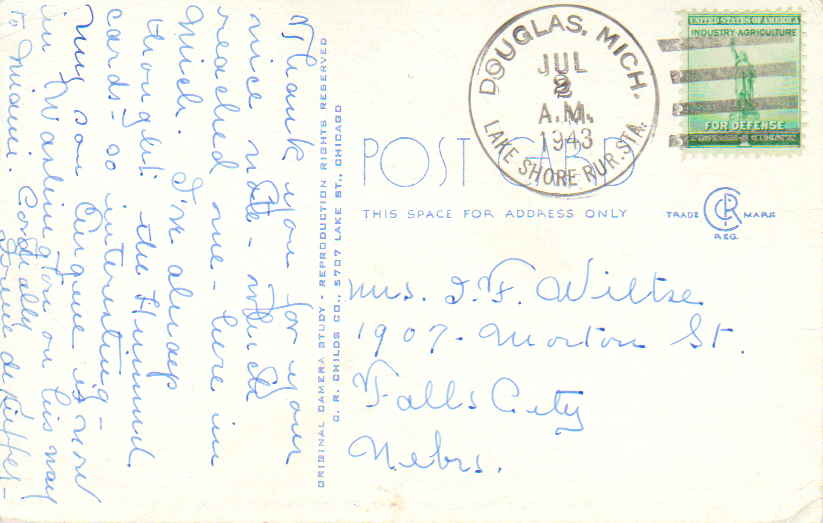 Thank you for your
nice note - which
reached me - here in
Mich. I've always
thought the Hummel
cards - so interesting -
My son Eugene is now
in Washington on his way
to Miami. Cordially
ORIGINAL CAMERA STUDY - REPRODUCTION RIGHTS RESERVED
C. R. CHILDS CO., 5707 LAKE ST., CHICAGO
DOUGLAS, MICH.
JUL
2
A.M.
1943
LAKE SHORE RUR. STA.
UNITED STATES OF AMERICA
INDUSTRY AGRICULTURE
FOR DEFENSE
POST CARD
THIS SPACE FOR ADDRESS ONLY
TRADE CRC MARK
REG.
Mrs. I. F. Wiltse
1907 - Morton St.
Falls City
Nebrs.